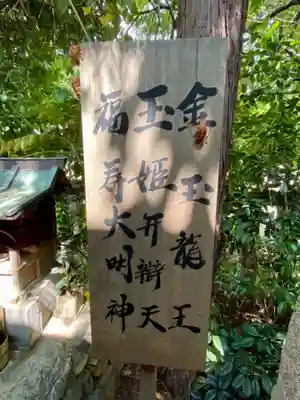 金玉龍王
玉姫弁辯天
福寿大明神